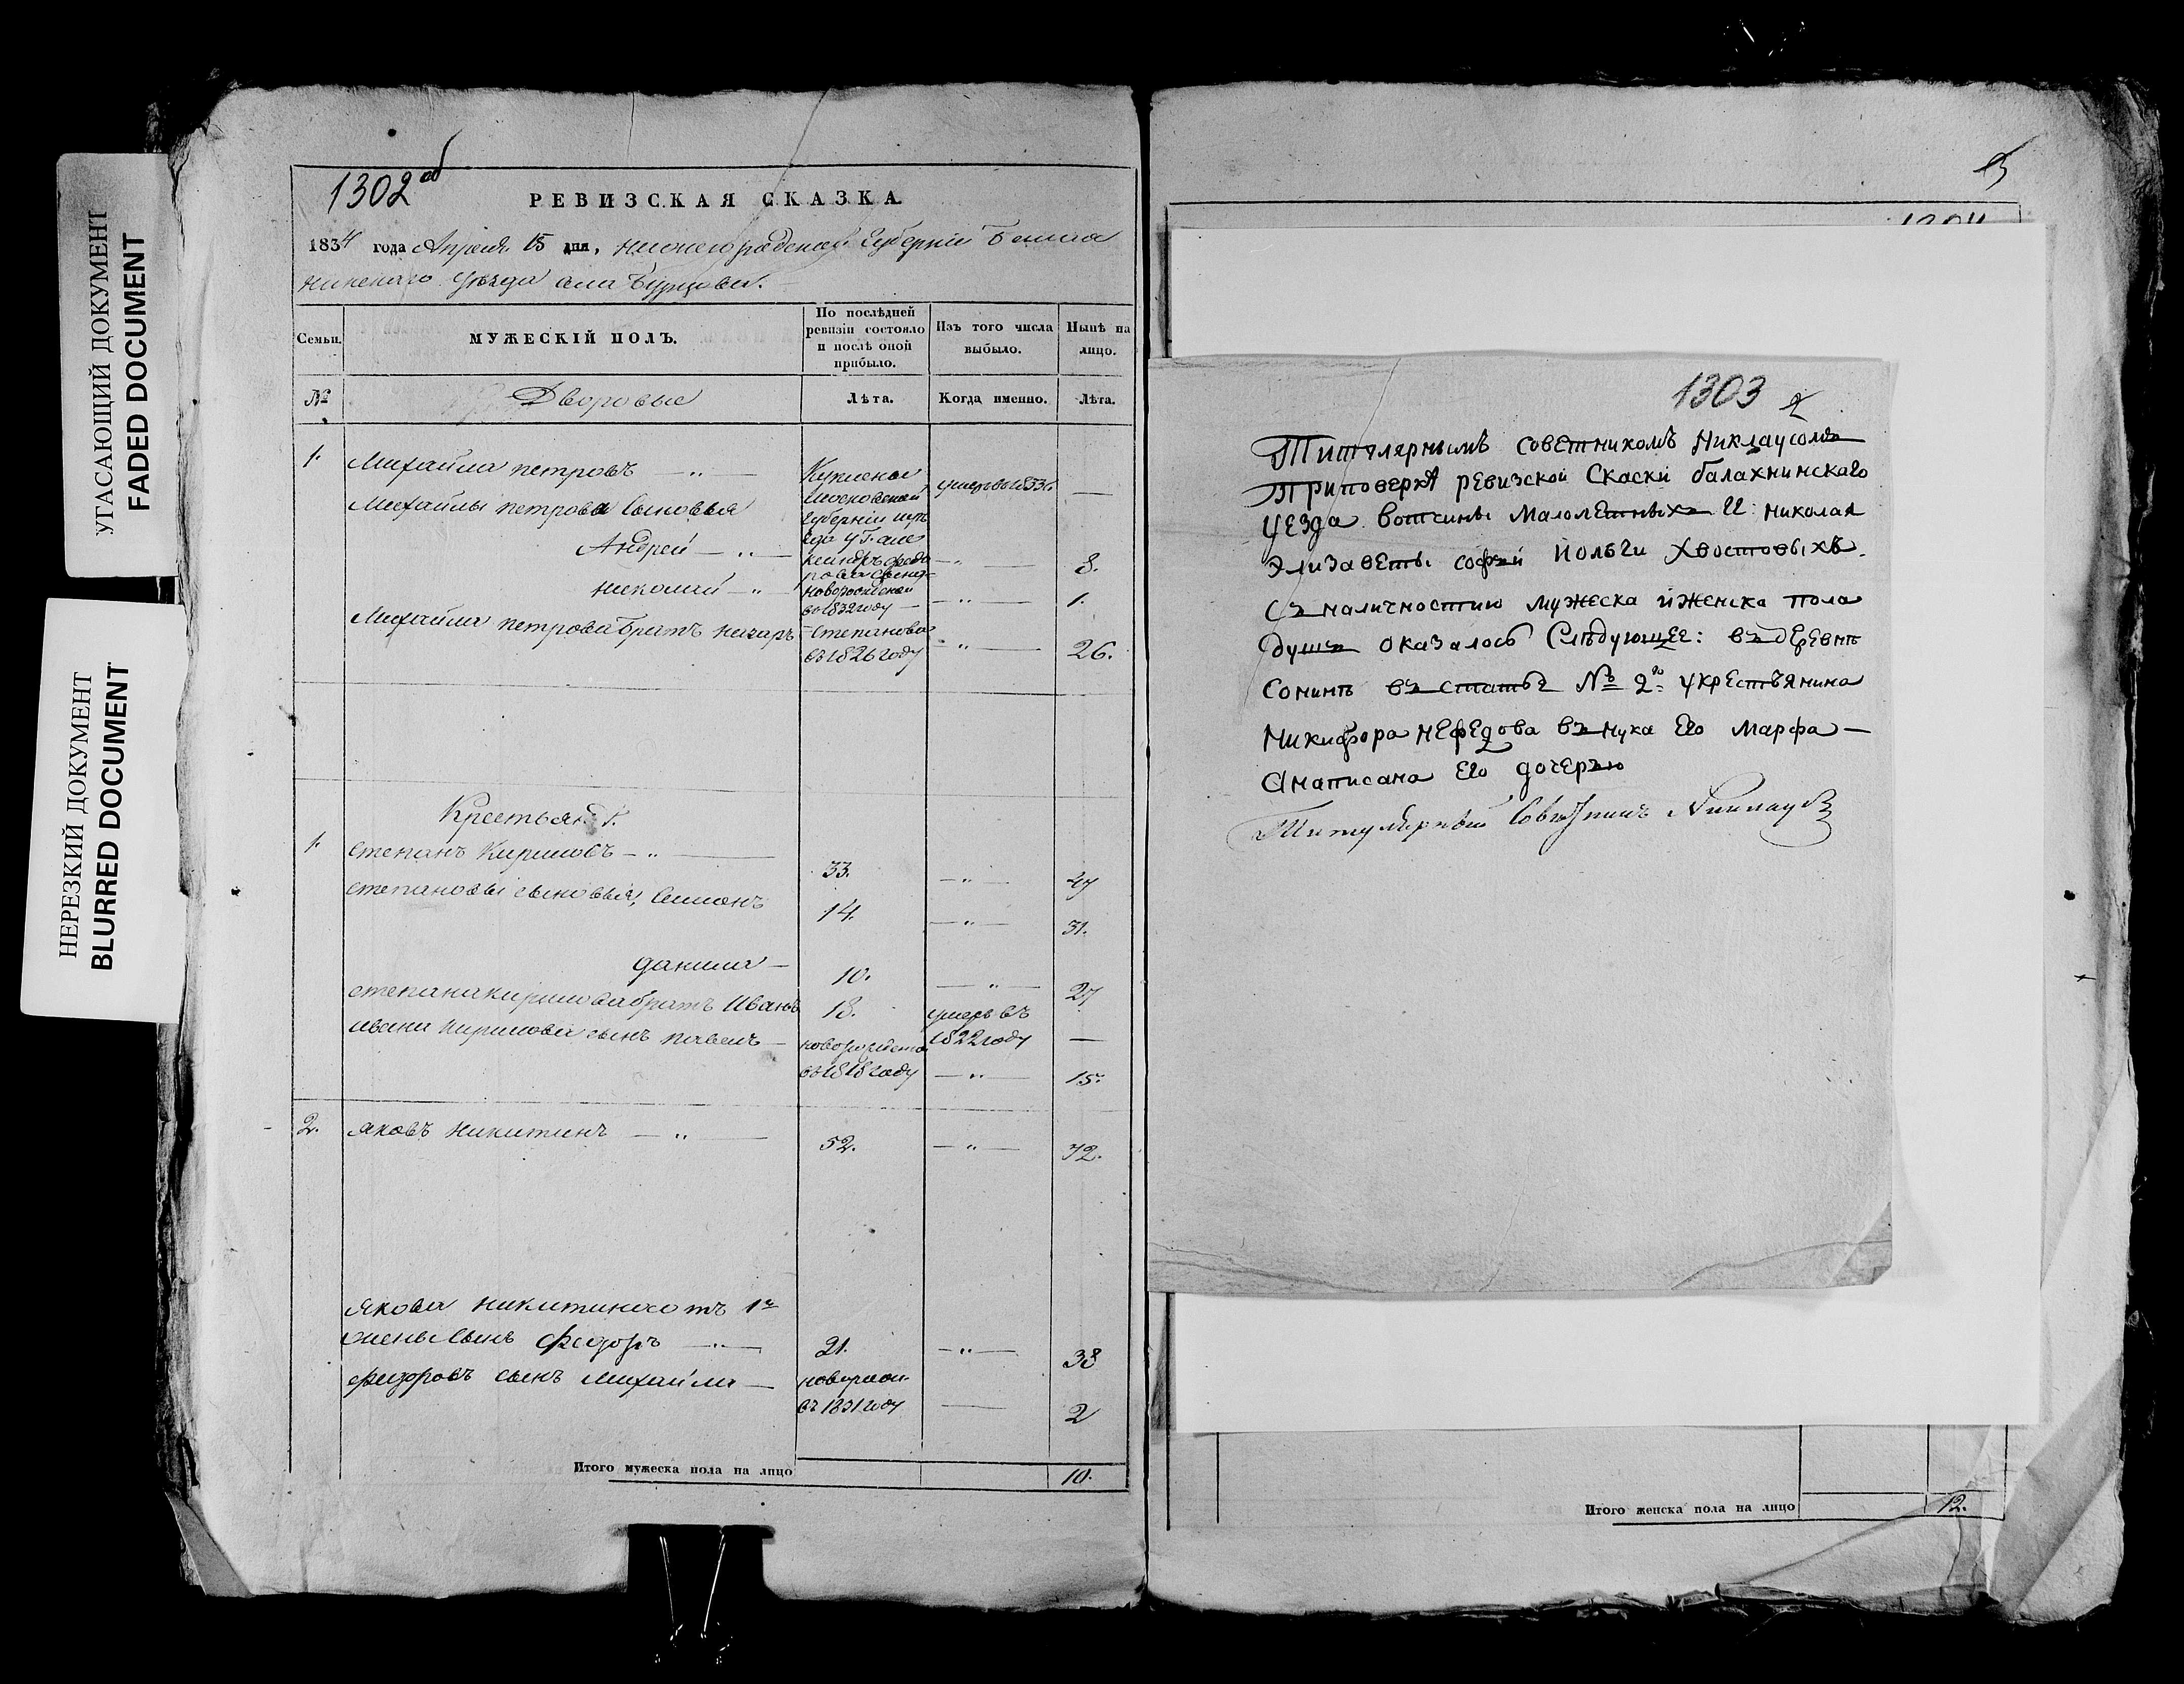 УГАСАЮЩИЙ ДОКУМЕНТ
FADED DOCUMENT
НЕРЕЗКИЙ ДОКУМЕНТ
BLURRED DOCUMENT
1302 об
РЕВИЗСКАЯ СКАЗКА.
1834 года Апреля 15 дня, нижегородской Губерніи Балах
нинскаго уѣзда села Бурцова.
Семьи.
МУЖЕСКІЙ ПОЛЪ.
По послѣдней ревизіи состояло и послѣ оной прибыло.
Изъ того числа выбыло.
Нынѣ на лицо.
№
Дворовые
Лѣта.
Когда именно.
Лѣта.
1. Михайла петровъ — „ — умеръ въ 1833 г. —
Михайлы петрова сыновья
Московской
губерніи
Андрей — „ — — „ — 8.
николай — „ новорожденной въ 1832 году — „ — 1.
Михайла петрова братъ назаръ Степановой въ 1826 году — „ — 26.
Крестьяне
1. степанъ Кириловъ — „ — 33. — „ — 47
степановы сыновья, Семенъ 14. — „ — 31.
данила — 10. — „ — 27
степана кирилова братъ Иванъ 18. умеръ въ 1822 году —
ивана кирилова сынъ павелъ — новорожденной въ 1818 году — „ — 15.
2. яковъ никитинъ — „ — 52. — „ — 72.
якова никитина отъ 1й
жены сынъ Федоръ — „ — 21. — „ — 38
федоровъ сынъ михайла — въ 1831 году — 2
Итого мужеска пола на лицо 10.
1303
2
Титулярнымъ советникомъ Никлаусомъ
Приповеркѣ ревизской Скаски балахнинскаго
уезда вотчины малолетныхъ ГГ: николая
Элизаветы софьи йольги Хвостовыхъ.
Съ наличностию мужеска йженска пола
душъ оказалось Слѣдующее: въ деревнѣ
Сонинѣ въ статье № 2го укрестьянина
Никифора нефедова внука Его марфа —
Анаписана Его дочерью
Титулярный Советникъ Никлаусъ
Итого женска пола на лицо 12.